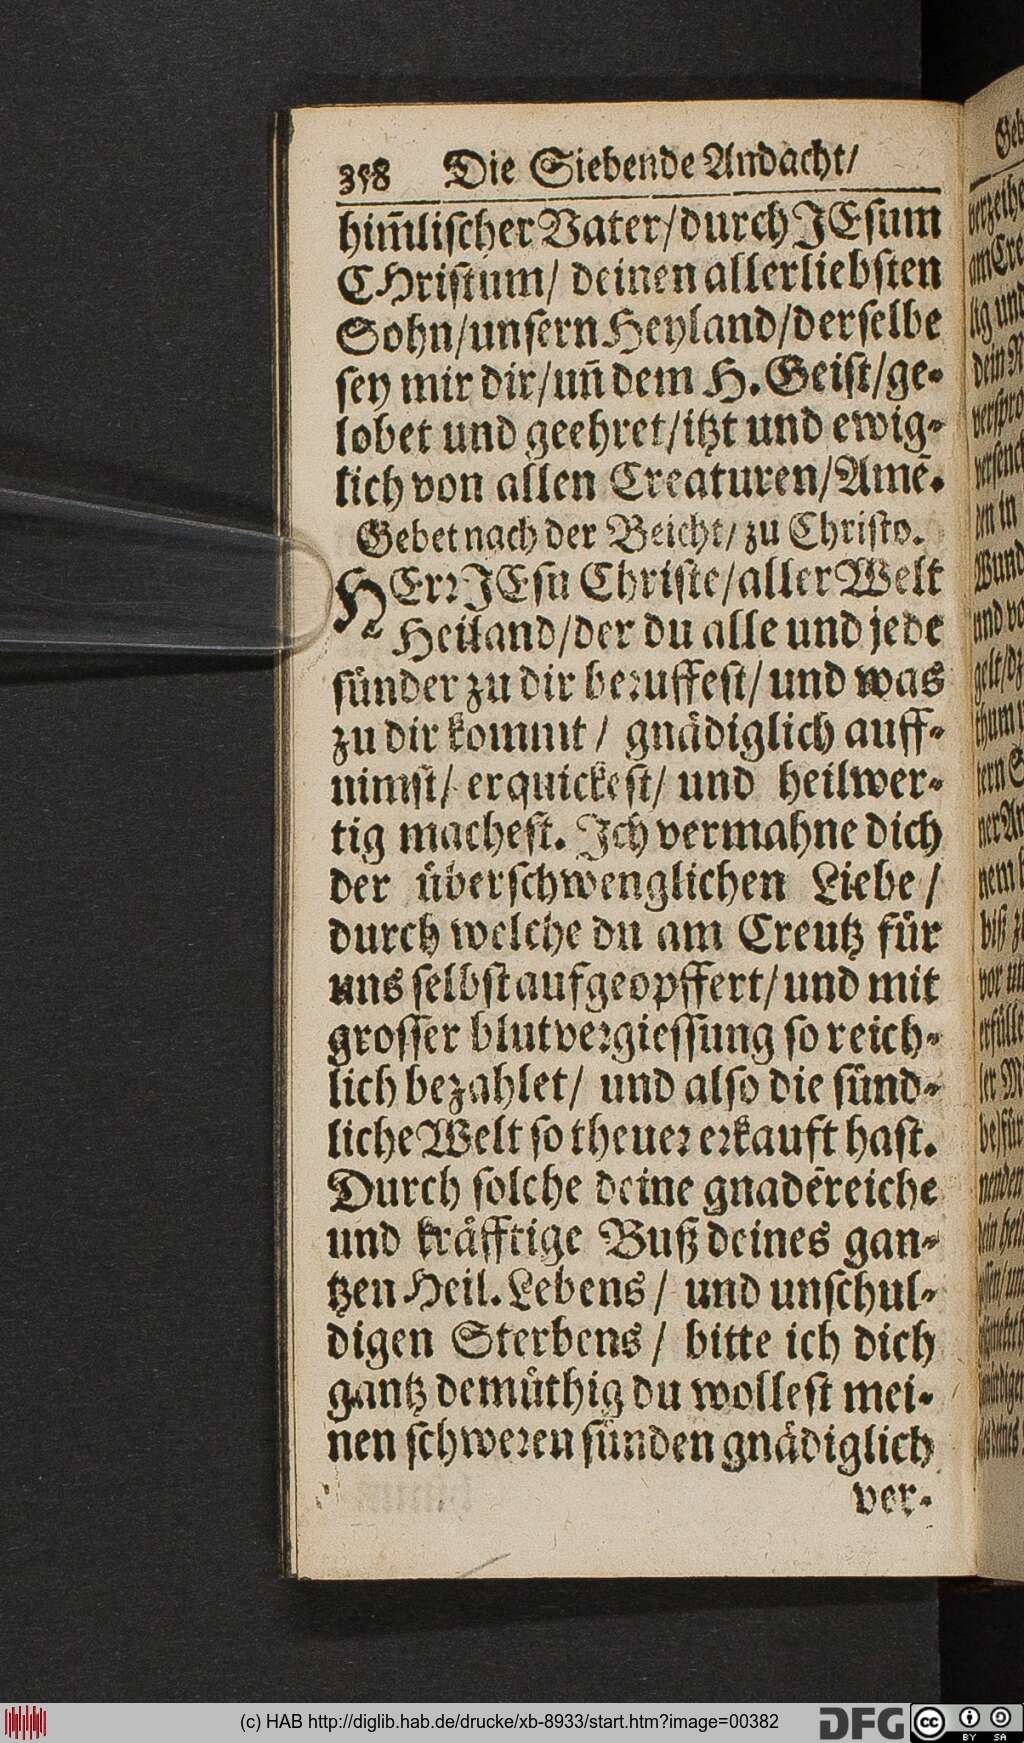 358 Die Siebende Andacht/
him̃lischer Vater/durch JEsum
CHristum/ deinen allerliebsten
Sohn/unsern Heyland/derselbe
sey mir dir/uñ dem H. Geist/ge-
lobet und geehret/itzt und ewig-
lich von allen Creaturen/Amẽ.
Gebet nach der Beicht/ zu Christo.
HErr JEsu Christe/aller Welt
Heiland/der du alle und jede
sünder zu dir beruffest/ und was
zu dir kommt / gnädiglich auff-
nimst/ erquickest/ und heilwer-
tig machest. Ich vermahne dich
der überschwenglichen Liebe /
durch welche du am Creutz für
uns selbst aufgeopffert/und mit
grosser blutvergiessung so reich-
lich bezahlet/ und also die sünd-
liche Welt so theuer erkauft hast.
Durch solche deine gnadẽreiche
und kräfftige Buß deines gan-
tzen Heil. Lebens / und unschul-
digen Sterbens / bitte ich dich
gantz demüthig du wollest mei-
nen schweren sünden gnädiglich
ver-
(c) HAB http://diglib.hab.de/drucke/xb-8933/start.htm?image=00382
DFG
cc BY SA